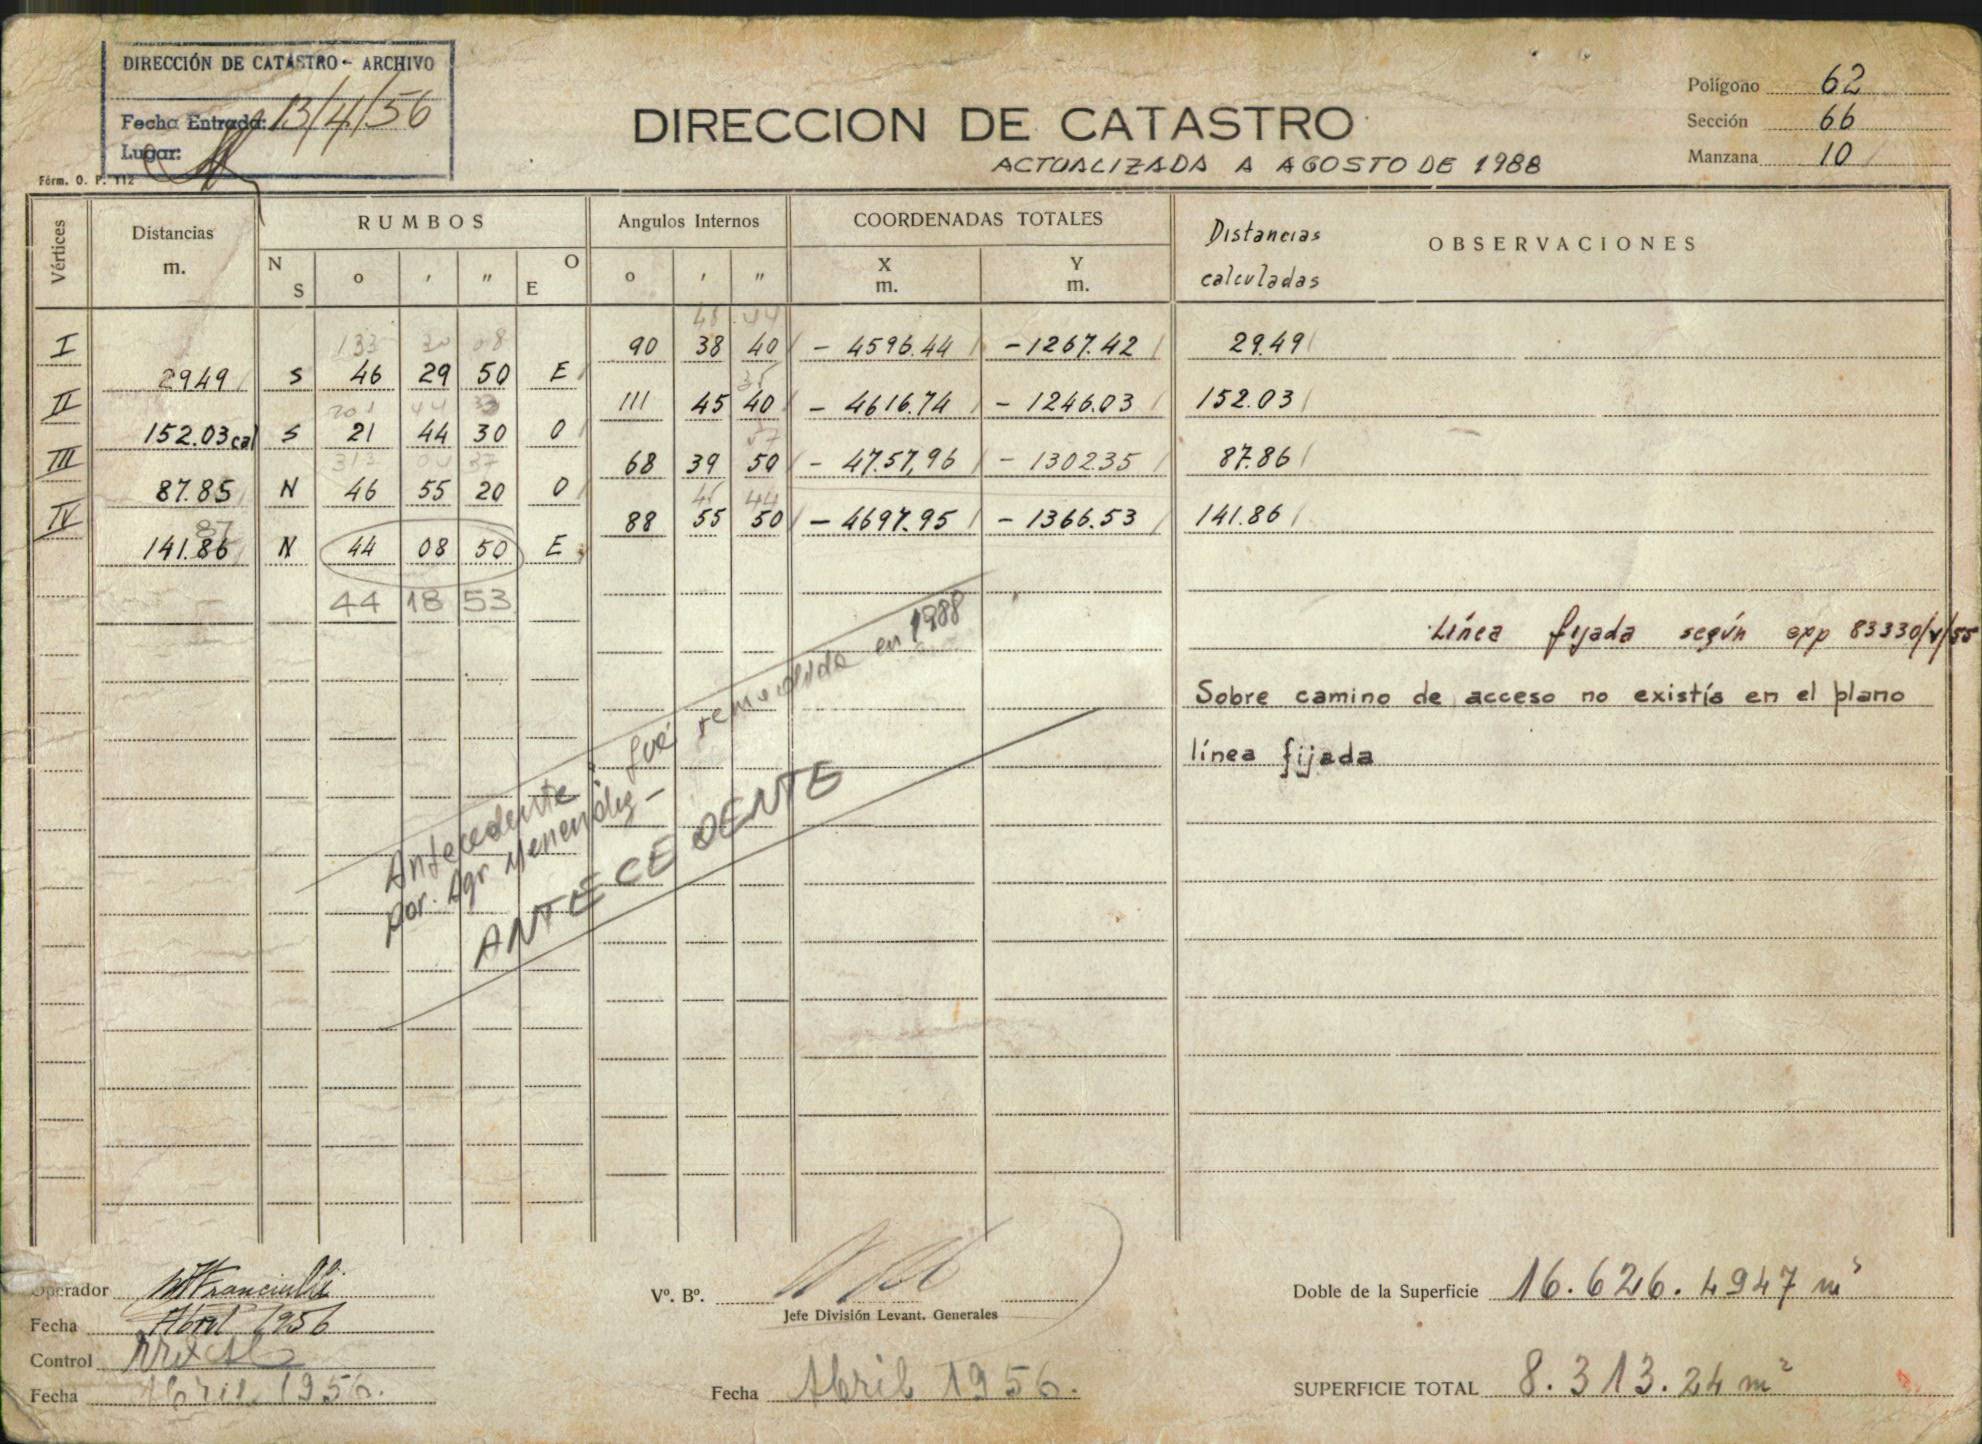 DIRECCIÓN DE CATASTRO - ARCHIVO
Fecha Entrada: 13/4/56
Lugar:
Fórm. O. P. 112
DIRECCION DE CATASTRO
ACTUALIZADA A AGOSTO DE 1988
Polígono 62
Sección 66
Manzana 10
Vértices
Distancias
m.
RUMBOS
N S ° ' " O E
Angulos Internos
° ' "
COORDENADAS TOTALES
X
m.
Y
m.
Distancias
calculadas
OBSERVACIONES
I 90 38 40 - 4596.44 - 1267.42 29.49
133 30 08
29.49 S 46 29 50 E
II 111 45 40 - 4616.74 - 1246.03 152.03
201 44 33
152.03 cal S 21 44 30 O
III 68 39 50 - 47.57,96 - 1302.35 87.86
87.85 N 46 55 20 O
IV 88 55 50 - 4697.95 - 1366.53 141.86
87
141.86 N 44 08 50 E
44 18 53
Línea fijada según exp 83330/V/55
Sobre camino de acceso no existía en el plano
línea fijada
Antecedente fué removida en 1988
por Agr Menendez -
ANTECEDENTE
Operador
Fecha Abril 1956
Control
Fecha Abril 1956.
Vº. Bº.
Jefe División Levant. Generales
Fecha Abril 1956.
Doble de la Superficie 16.626.4947 m²
SUPERFICIE TOTAL 8.313.24 m²